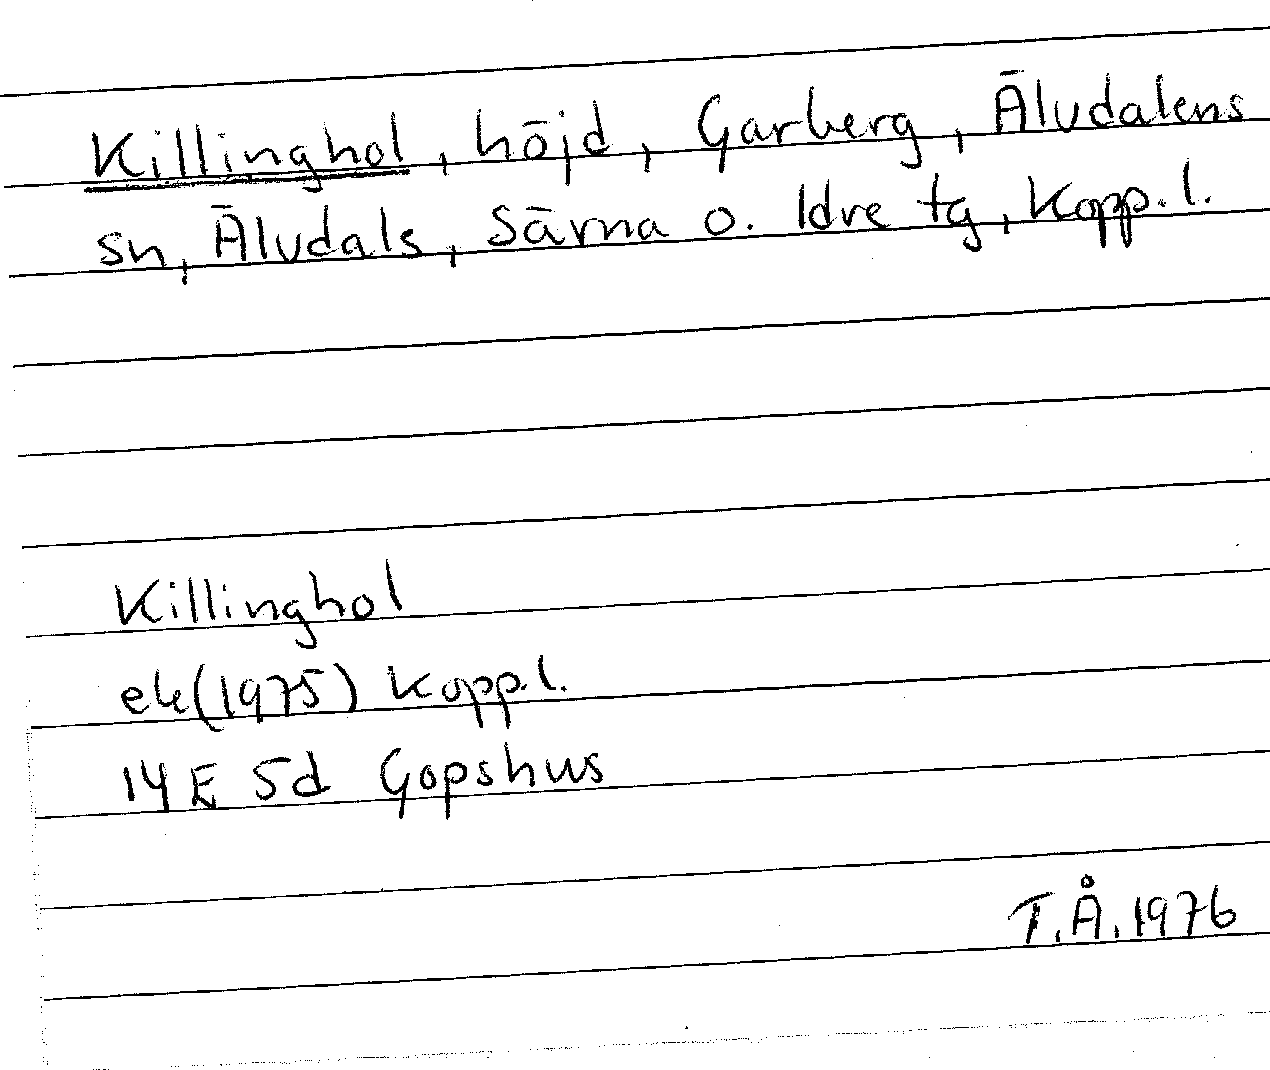 Killinghol, höjd, Garberg, Älvdalens
sn, Älvdals, Särna o. Idre tg, Kopp. l.
Killinghol
ek (1975) Kopp. l.
14 E 5d Gopshus
T.Å. 1976